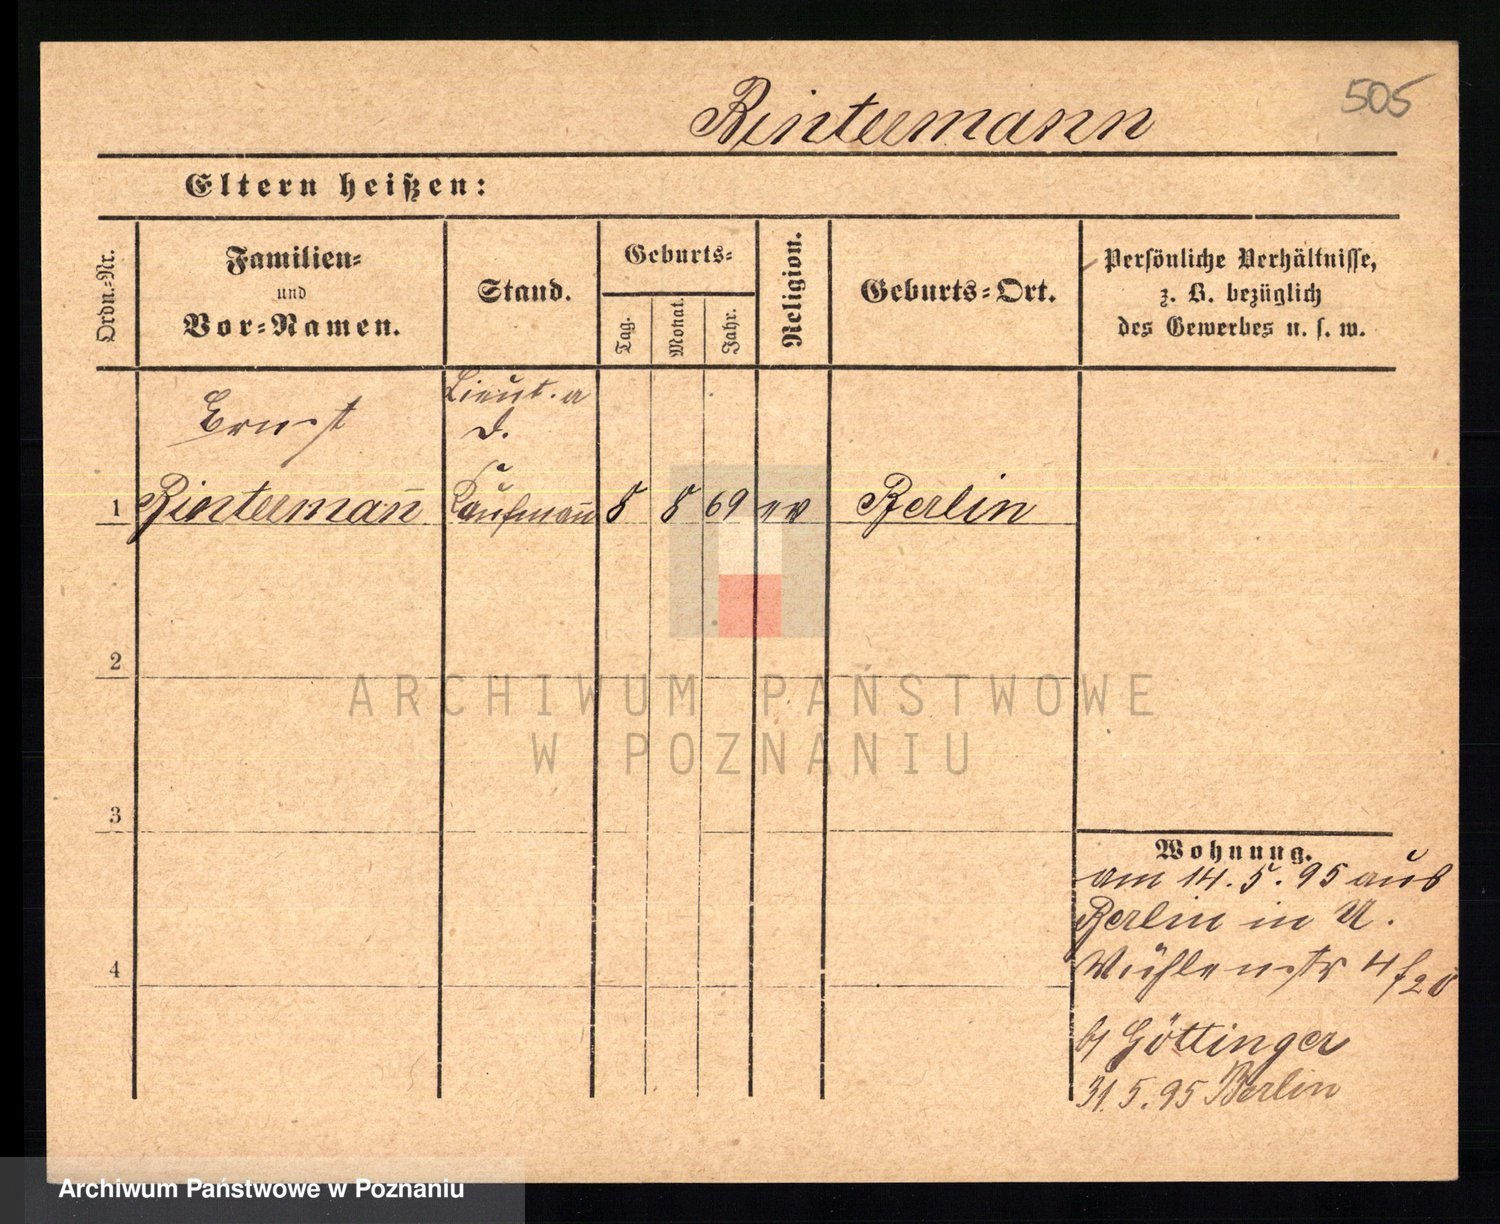 505
Bintermann
Eltern heißen:
Ordn.-Nr.
Familien-
und
Vor-Namen.
Stand.
Geburts-
Tag.
Monat.
Jahr.
Religion.
Geburts-Ort.
Persönliche Verhältnisse,
z. B. bezüglich
des Gewerbes u. s. w.
Ernst
Lieut. a
d.
1 Bintermañ Kaufmañ 8 8 69 ev Berlin
2
3
4
ARCHIWUM PAŃSTWOWE
W POZNANIU
Wohnung.
am 14. 5. 95 aus
Berlin in
Mühlenstr 4
b/ Göttinger
31. 5. 95 Berlin
Archiwum Państwowe w Poznaniu